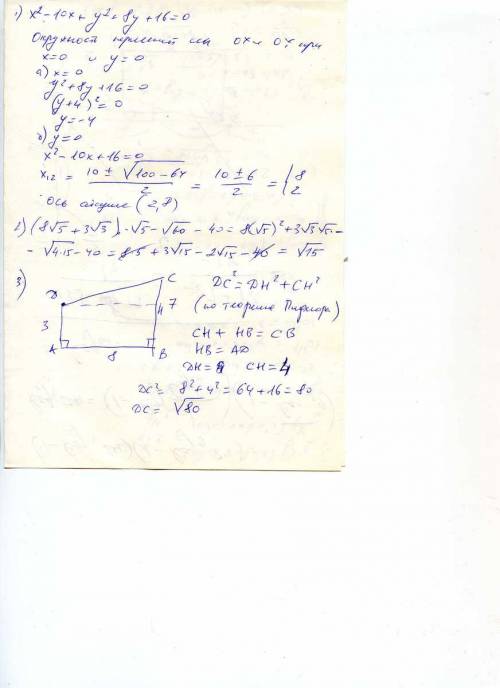 1) x² - 10x + y² + 8y + 16 = 0
Окружност ox и oy при
x=0 и y=0
а) x=0
y² + 8y + 16 = 0
(y+4)² = 0
y = -4
б) y=0
x² - 10x + 16 = 0
x₁,₂ = (10 ± √(100-64))/2 = (10 ± 6)/2 = { 8 2
Ось абсцисс (2,8)
2) (8√5 + 3√3)·√5 - √60 - 40 = 8(√5)² + 3√3√5 -
- √(4·15) - 40 = 8·5 + 3√15 - 2√15 - 40 = √15
3)
D C 3 7 H A 8 B
DC² = DH² + CH²
(по теореме Пифагора)
CH + HB = CB
HB = AD
DH = 8 CH = 4
DC² = 8² + 4² = 64 + 16 = 80
DC = √80